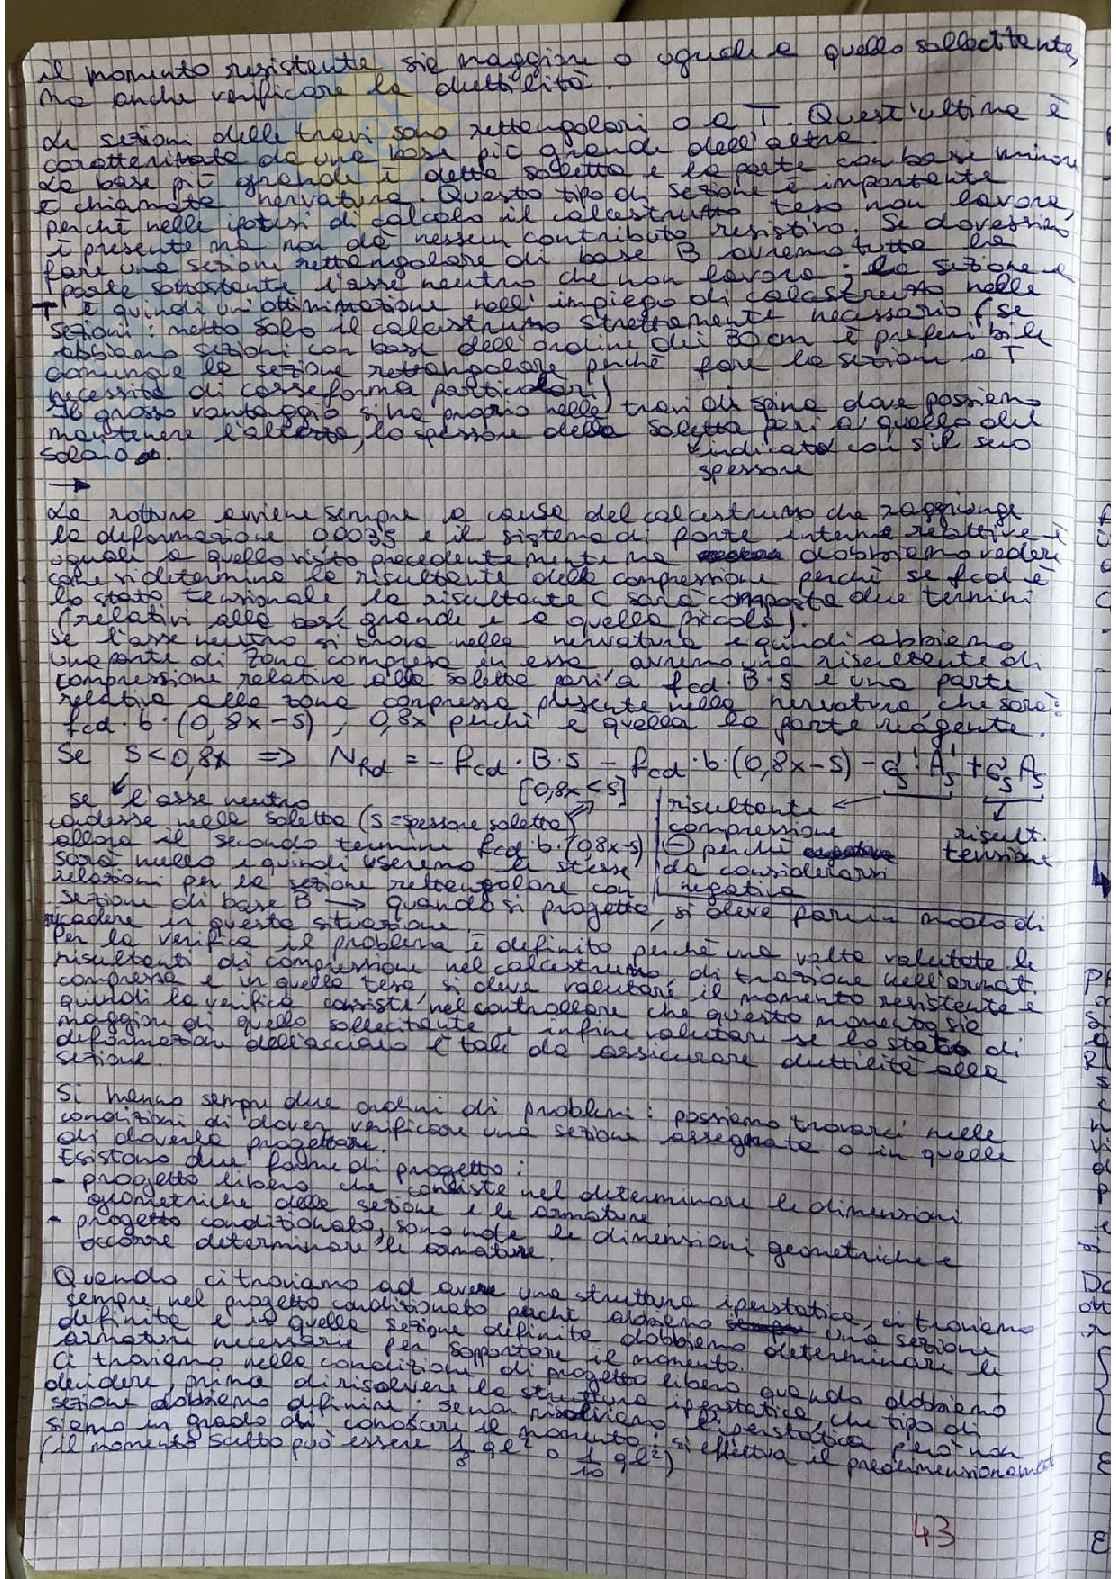 il momento resistente sia maggiore o uguale a quello sollecitante,
ma anche verificare la duttilità.
Le sezioni delle travi sono rettangolari o a T. Quest'ultima è
caratterizzata da una base più grande dell'altra.
La base più grande è detta soletta e la parte con base minore
è chiamata nervatura. Questo tipo di sezione è importante
perché nelle ipotesi di calcolo il calcestruzzo teso non lavora,
è presente ma non dà nessun contributo resistivo. Se dovessimo
fare una sezione rettangolare di base B avremo tutta la
parte sottostante l'asse neutro che non lavora: la sezione a
T è quindi un'ottimizzazione nell'impiego di calcestruzzo nelle
sezioni: metto solo il calcestruzzo strettamente necessario (se
abbiamo sezioni con base dell'ordine dei 30 cm è preferibile
comunque la sezione rettangolare perché fare la sezione a T
necessita di casseforma particolari)
Il grosso vantaggio si ha proprio nelle travi di spina dove possiamo
mantenere l'altezza, lo spessore della soletta pari a quello del
solaio.
indicato con s il suo
spessore
La rottura avviene sempre a causa del calcestruzzo che raggiunge
la deformazione 0,0035 e il sistema di forze interne relative è
uguale a quello visto precedentemente ma dobbiamo vedere
come si determina la risultante delle compressione perché se fcd è
lo stato tensionale la risultante C sarà composta due termini
(relativi alla base grande e a quella piccola).
Se l'asse neutro si trova nella nervatura e quindi abbiamo
una parte di zona compressa in essa, avremo una risultante di
compressione relativa alla soletta pari a fcd·B·s e una parte
relativa alla zona compressa presente nella nervatura, che sarà:
fcd·b·(0,8x-s), 0,8x perché è quella la parte reagente.
Se S<0,8x => NRd = -fcd·B·s - fcd·b·(0,8x-s) - σs'·As' + σs As
[0,8x<s]
se l'asse neutro
cadesse nella soletta (s=spessore soletta)
allora il secondo termine fcd·b·(0,8x-s)
sarà nullo e quindi useremo le stesse
relazioni per la sezione rettangolare con
sezione di base B → quando si progetta, si deve fare in modo di
ricadere in questa situazione.
risultante
compressione
(-) perché
da considerarsi
negativa
risult.
tensione
Per la verifica il problema è definito perché una volta valutate le
risultanti di compressione nel calcestruzzo, di trazione nell'armat.
compressa e in quella tesa, si deve valutare il momento resistente e
quindi la verifica consiste nel controllare che questo momento sia
maggiore di quello sollecitante e infine valutare se lo stato di
deformazione dell'acciaio è tale da assicurare duttilità alla
sezione.
Si hanno sempre due ordini di problemi: possiamo trovarci nelle
condizioni di dover verificare una sezione assegnata o in quelle
di doverla progettare.
Esistono due forme di progetto:
- progetto libero che consiste nel determinare le dimensioni
geometriche della sezione e le armature
- progetto condizionato, sono note le dimensioni geometriche e
occorre determinare le armature.
Quando ci troviamo ad avere una struttura iperstatica, ci troviamo
sempre nel progetto condizionato perché abbiamo una sezione
definita e in quella sezione definita dobbiamo determinare le
armature necessarie per sopportare il momento.
Ci troviamo nella condizione di progetto libero quando dobbiamo
decidere, prima di risolvere la struttura iperstatica, che tipo di
sezione dobbiamo definire: senza risolviamo l'iperstatica però non
siamo in grado di conoscere il momento: si effettua il predimensionamento
(il momento scelto può essere 1/8 ql² o 1/10 ql²)
43